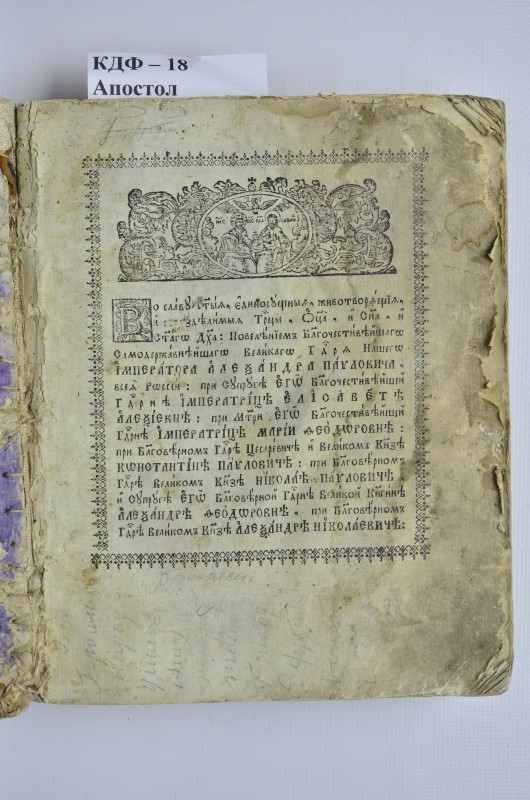 КДФ – 18
Апостол
Во славу ст҃ыѧ, єдиносущныѧ, животворѧщїѧ,
и нераздѣлимыѧ Трⷪ҇цы, Ѻц҃а, и Сн҃а, и
Ст҃агѡ Дх҃а: Повелѣнїемъ Бл҃гочестивѣйшагѡ
Самодержавнѣйшагѡ Великагѡ Гд҃рѧ Нашегѡ
ІМПЕРАТОРА АЛЕѮАНДРА ПАѴЛОВИЧА,
всеѧ Рѡссїи: при Супругѣ ЕГѠ Бл҃гочестивѣйшей
Гд҃рнѣ ІМПЕРАТРИЦѢ ЕЛІСАВЕТѢ
АЛЕѮІЕВНѢ: при Мт҃ри ЕГѠ Бл҃гочестивѣйшей
Гд҃рнѣ ІМПЕРАТРИЦѢ МАРІИ ѲЕѠДѠРОВНѢ:
при Бл҃говѣрномъ Гд҃рѣ Цесаревичѣ и Великомъ Кн҃зѣ
КѠНСТАНТІНѢ ПАѴЛОВИЧѢ: при Бл҃говѣрномъ
Гд҃рѣ Великомъ Кн҃зѣ НІКОЛАѢ ПАѴЛОВИЧѢ,
и Супругѣ ЕГѠ Бл҃говѣрной Гд҃рнѣ Великой Кн҃гинѣ
АЛЕѮАНДРѢ ѲЕѠДѠРОВНѢ, при Бл҃говѣрномъ
Гд҃рѣ Великомъ Кн҃зѣ АЛЕѮАНДРѢ НІКОЛАЕВИЧѢ: